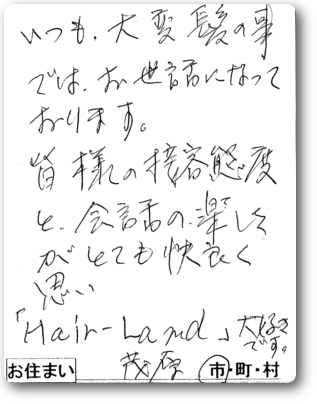 いつも、大変髪の事
では、お世話になって
おります。
皆様の接客態度
と、会話の楽しさ
がとても快良く
思い
「Hair-Land」大好き
です。
お住まい 茂原 市・町・村